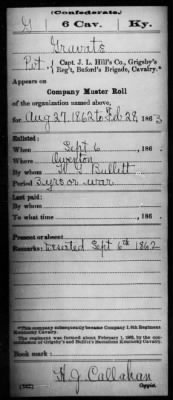 (Confederate.)
G 6 Cav. Ky.
Gravats
Pvt., Capt. J. L. Hill's Co., Grigsby's
Reg't, Buford's Brigade, Cavalry.*
Appears on
Company Muster Roll
of the organization named above,
for Aug 27, 1862 to Feb 28, 1863
Enlisted:
When Sept 6, 186
Where Owenton
By whom Bullett
Period 3 yrs or war
Last paid:
By whom
To what time , 186 .
Present or absent
Remarks: Deserted Sept 6th 1862
*This company subsequently became Company , 6th Regiment
Kentucky Cavalry.
The regiment was formed about February 1, 1863, by the con-
solidation of Grigsby's and Bullitt's Battalions Kentucky Cavalry.
Book mark:
H. J. Callahan
(642) Copyist.